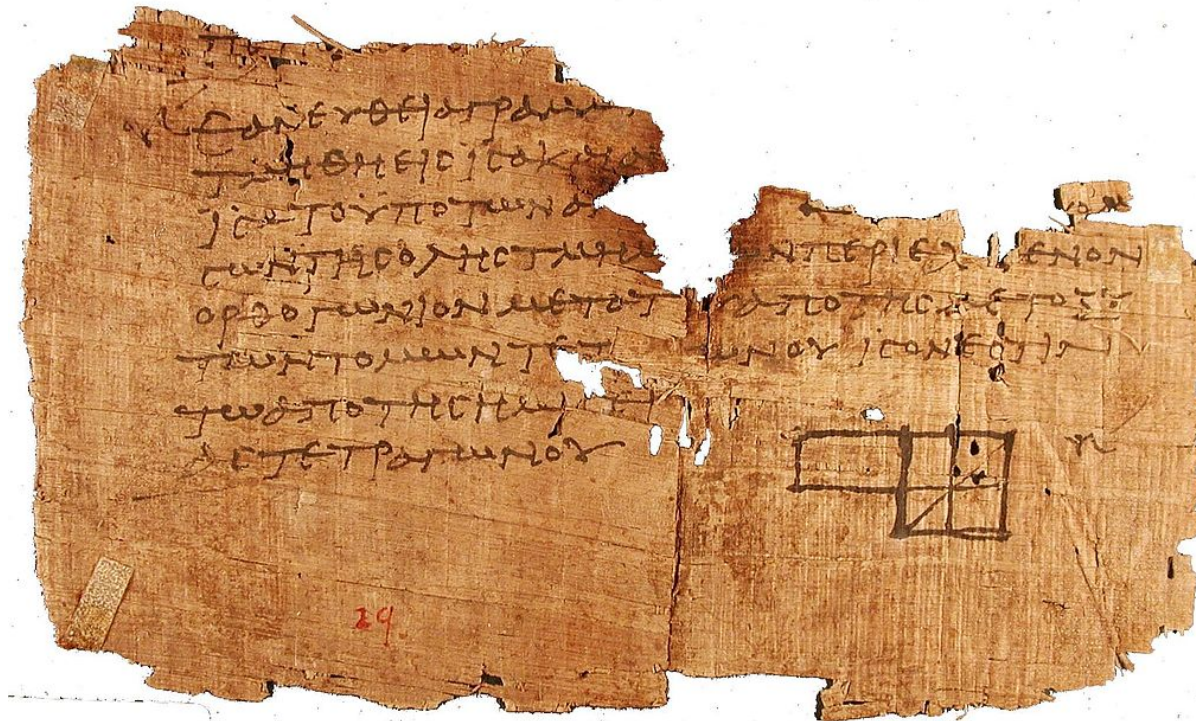 ΕΑΝ ΕΥΘΕΙΑ ΓΡΑΜΜ
ΤΜΗΘΗ ΕΙΣ ΙΣΑ ΚΑΙ
ΙΣΑ ΤΟ ΥΠΟ ΤΩΝ
ΤΗΣ ΟΛΗΣ ΤΜΗΜ ΩΝ ΠΕΡΙΕΧ ΕΝΟΝ
ΟΡΘΟΓΩΝΙΟΝ ΜΕΤΑ ΤΟΥ ΑΠΟ ΤΗΣ ΜΕΤΟΞΥ
ΤΩΝ ΤΟΜΩΝ ΤΕΤ ΩΝΟΥ ΙΣΟΝ ΕΣΤΙΝ
ΤΩ ΑΠΟ ΤΗΣ ΗΜΙΣΕΙ
ΤΕΤΡΑΓΩΝΟΥ
29